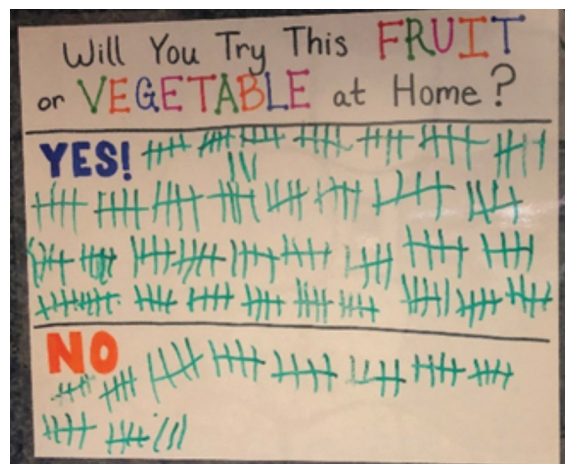 Will You Try This FRUIT
or VEGETABLE at Home?
YES!
NO